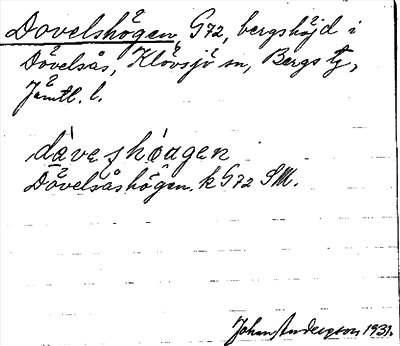 Dövelshögen, G72, bergshöjd i
Dövelsås, Klövsjö sn, Bergs tg,
Jämtl. l.
Dövelsåshögen k G72 SM.
Johan Anderson 1931.